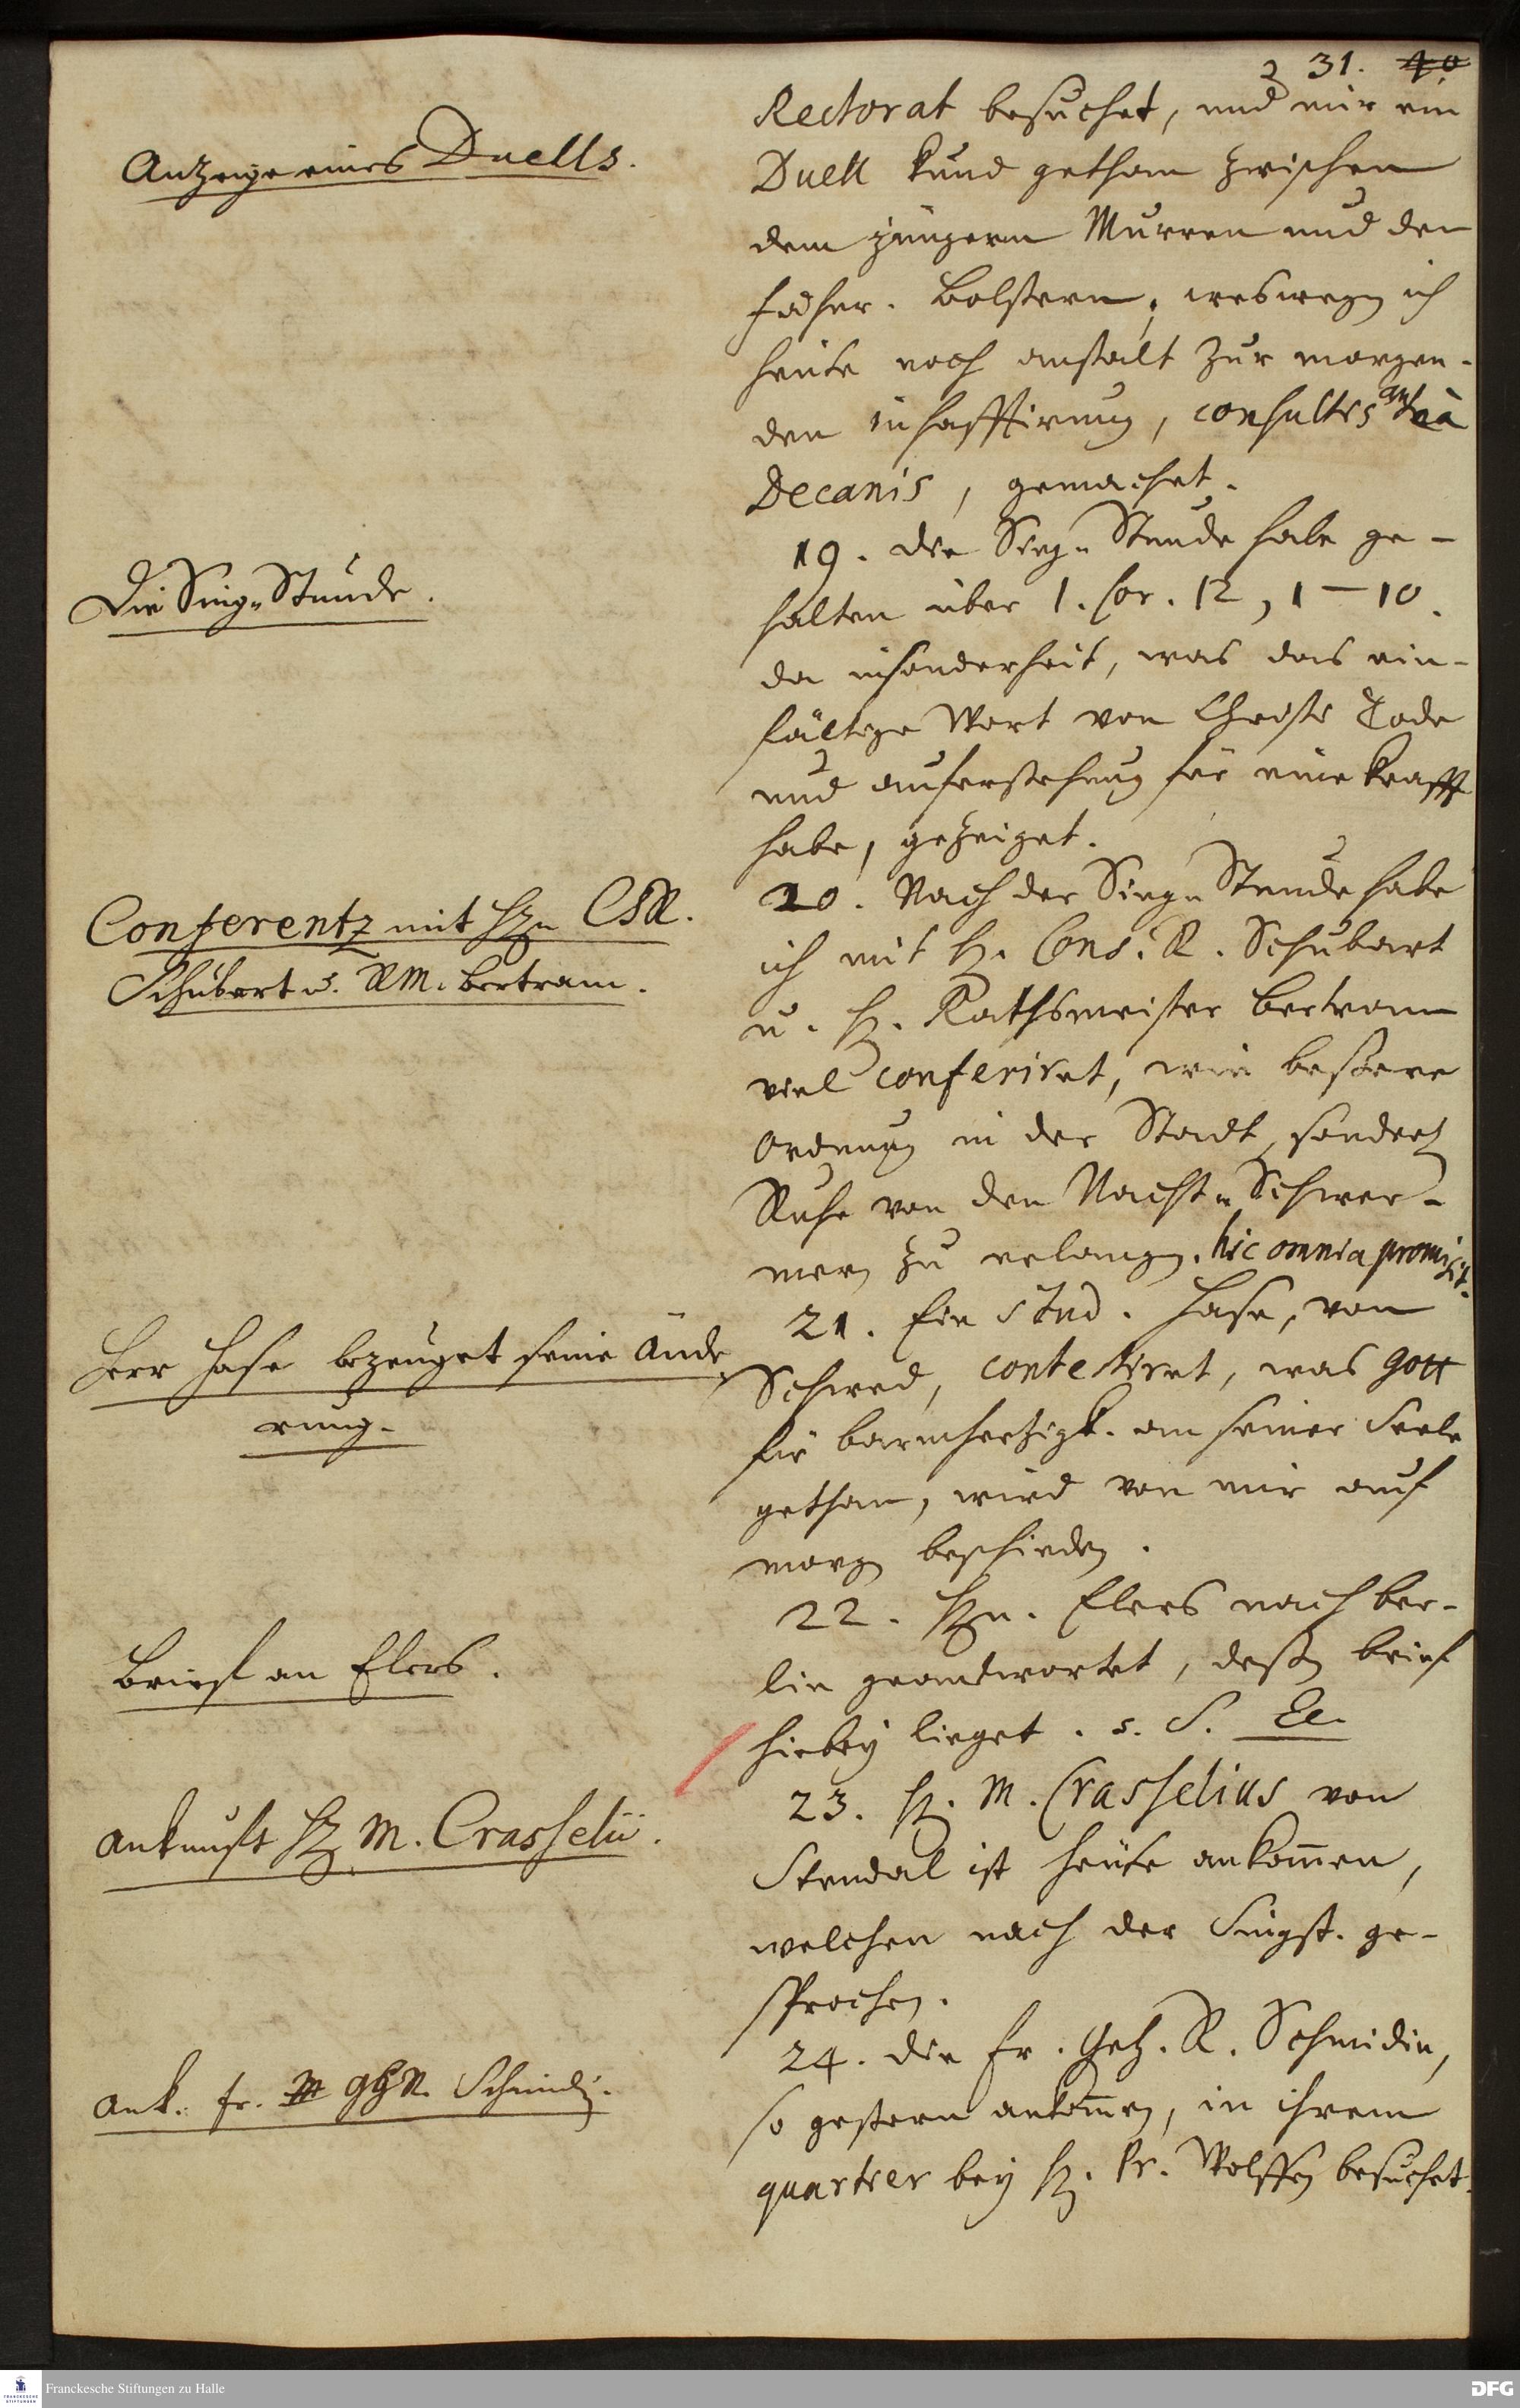 31. 40
Anzeige eines Duells.
Rectorat besuchet, und mir ein
Duell kund gethan zwischen
dem jüngern Murren und den
Bolstern, weswegen ich
heute noch anstalt zur morgen-
den inhafftirung, consultis
Decanis, gemachet.
Die Sing-Stunde.
19. die Sing-Stunde habe ge-
halten über 1. Cor. 12, 1-10.
da insonderheit, was das ein-
fältige Wort von Christi Tode
und auferstehung für eine Krafft
habe, gezeiget.
Conferentz mit HEn CSR.
Schubart u. RM. Bertram.
20. Nach der Sing-Stunde habe
ich mit H. Cons. R. Schubart
u. H. Rathsmeister Bertram
viel conferiret, wie bessere
Ordnung in der Stadt, sonderl.
Ruhe von den Nacht-Schwer-
mern zu erlangen. hic omnia promisit.
Herr Hase bezeuget seine Ände
rung.
21. Ein Stud. Hase, von
Schwed, contestiret, was Gott
für barmhertzigk. an seiner Seele
gethan, wird von mir auf
morgen beschieden.
Brief an Elers.
22. HEn. Elers nach Ber-
lin geantwortet, dessen brief
hiebey lieget. s. S.
Ankunfft H. M. Crasselii.
23. H. M. Crasselius von
Stendal ist heute ankom̅en,
welchen nach der Singst. ge-
sprochen.
Ank. Fr. GHR. Schmidin.
24. die Fr. Geh. R. Schmidin,
so gestern ankom̅en, in ihrem
quartier bey H. Pr. Wolffen besuchet.
Franckesche Stiftungen zu Halle
DFG